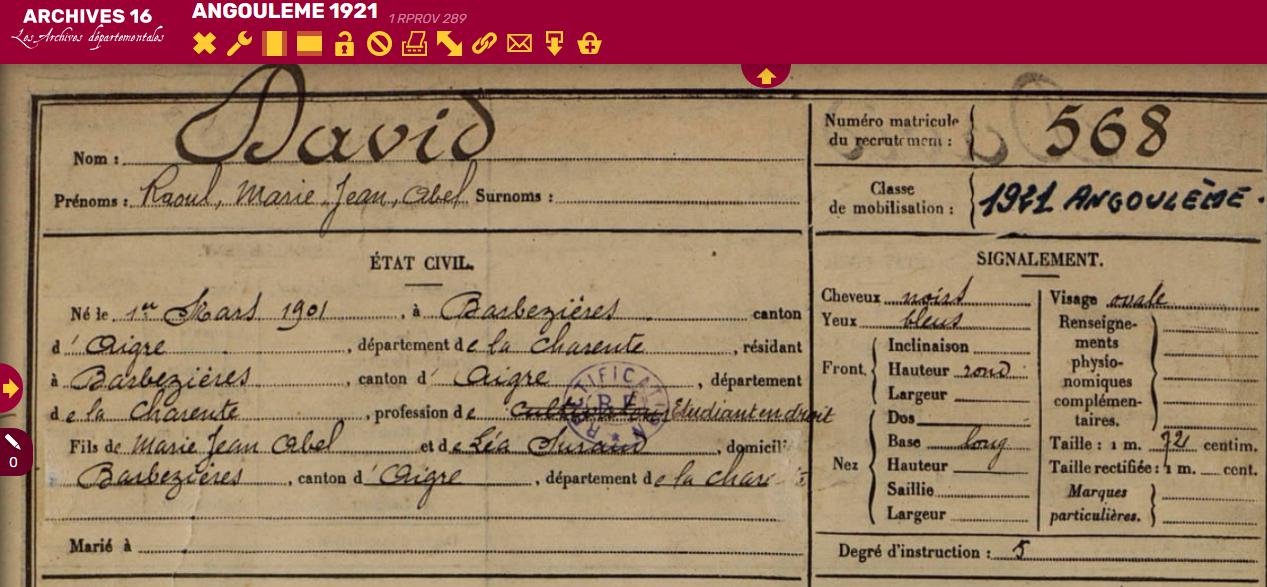 ARCHIVES 16
Les Archives départementales
ANGOULEME 1921 1 RPROV 289
0
Nom : David
Prénoms : Raoul, Marie, Jean, Abel Surnoms :
Numéro matricule du recrutement : 568
Classe de mobilisation : 1921 ANGOULÈME.
ÉTAT CIVIL.
Né le 1er Mars 1901, à Barbezières canton
d'Aigre, département de la Charente, résidant
à Barbezières, canton d'Aigre, département
de la Charente, profession de Cultivateur Etudiant en droit
RECTIFICATION
Fils de Marie Jean Abel et de Léa, domicil
Barbezières, canton d'Aigre, département de la Chare
Marié à
SIGNALEMENT.
Cheveux noirs
Yeux bleus
Front.
Inclinaison
Hauteur rond
Largeur
Nez
Dos
Base long
Hauteur
Saillie
Largeur
Visage ovale
Renseigne-
ments
physio-
nomiques
complémen-
taires.
Taille : 1 m. 721 centim.
Taille rectifiée : 1 m. cent.
Marques
particulières.
Degré d'instruction : 5